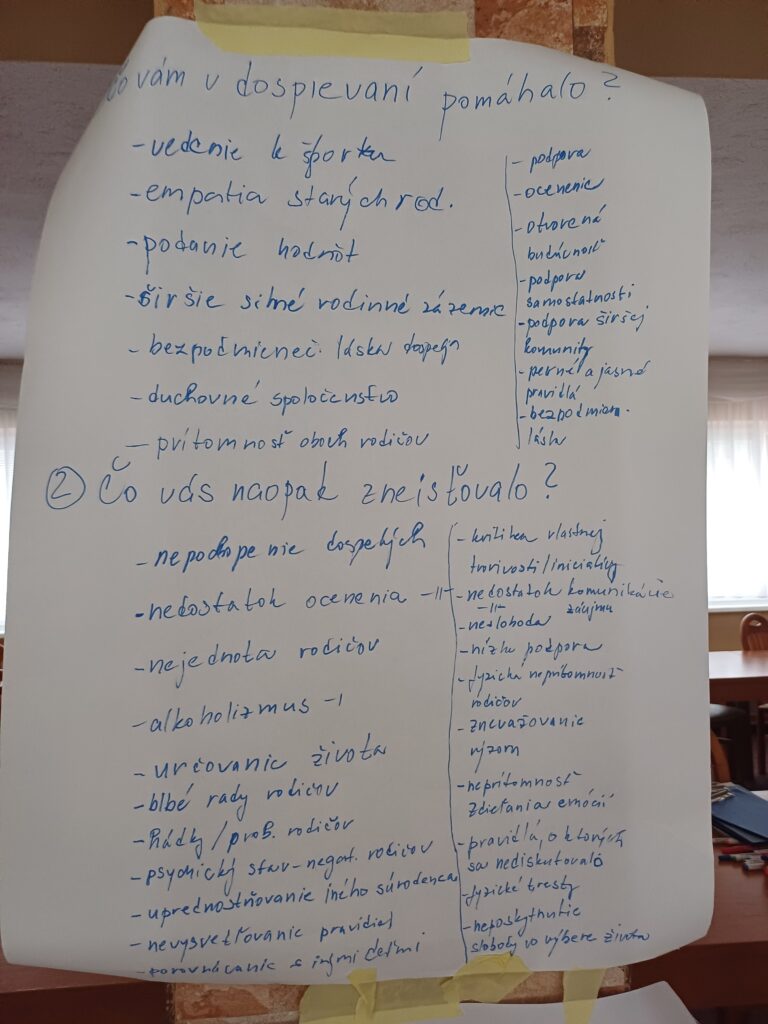 Čo vám v dospievaní pomáhalo?
- vedenie k športu
- empatia starých rod.
- podanie hodnôt
- širšie silné rodinné zázemie
- bezpodmieneč. láska
- duchovné spoločenstvo
- prítomnosť oboch rodičov
- podpora
- ocenenie
- otvorená
budúcnosť
- podpora
samostatnosti
- podpora širšej
komunity
- pevné a jasné
pravidlá
- bezpodmien.
láska
2 Čo vás naopak zneisťovalo?
- nepochopenie dospelých
- nedostatok ocenenia -||-
- nejednota rodičov
- alkoholizmus -|
- určovanie života
- blbé rady rodičov
- hádky / prob. rodičov
- psychický stav - negat. rodičov
- uprednostňovanie iného súrodenca
- nevysvetľovanie pravidiel
- porovnávanie s inými deťmi
- kritika vlastnej
tvorivosti/iniciatívy
- nedostatok komunikácie
-||- záujmu
- nesloboda
- nízka podpora
- fyzická neprítomnosť
rodičov
- znevažovanie
výzoru
- neprítomnosť
zdieľania emócií
- pravidlá, o ktorých
sa nediskutovalo
- fyzické tresty
- neposkytnutie
slobody vo výbere života